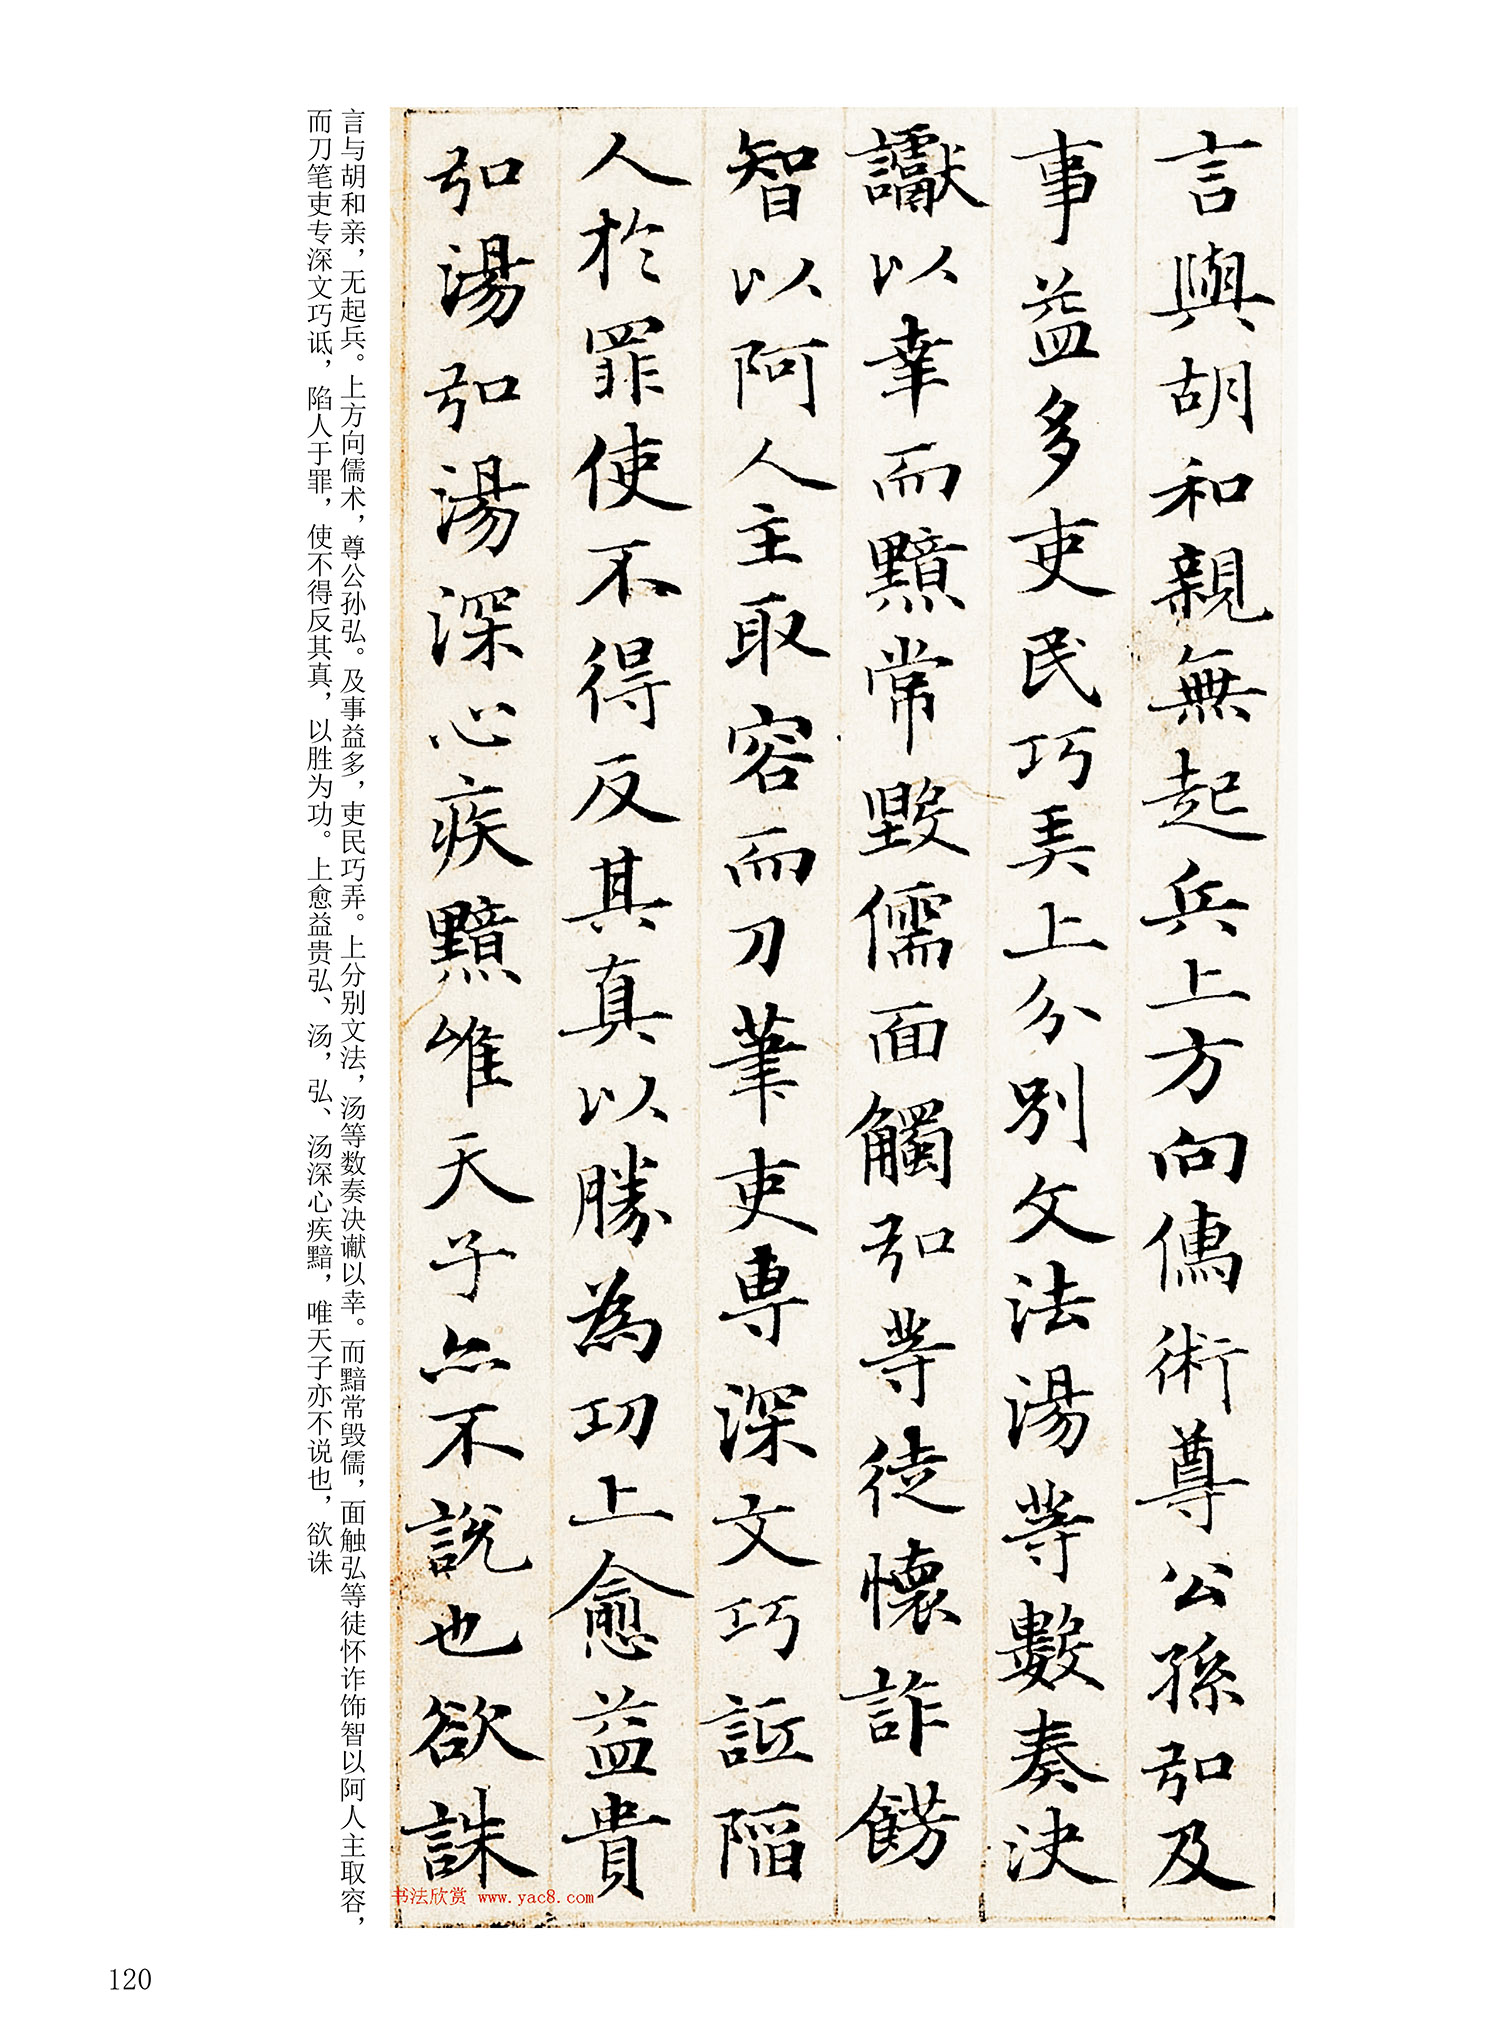 言與胡和親無起兵上方向儒術尊公孫弘及
事益多吏民巧弄上分別文法湯等數奏決
讞以幸而黯常毀儒面觸弘等徒懷詐飾
智以阿人主取容而刀筆吏專深文巧詆陷
人於罪使不得反其真以勝為功上愈益貴
弘湯弘湯深心疾黯唯天子亦不說也欲誅
言与胡和亲，无起兵。上方向儒术，尊公孙弘。及事益多，吏民巧弄。上分别文法，汤等数奏决谳以幸。而黯常毁儒，面触弘等徒怀诈饰智以阿人主取容，
而刀笔吏专深文巧诋，陷人于罪，使不得反其真，以胜为功。上愈益贵弘、汤，弘、汤深心疾黯，唯天子亦不说也，欲诛
书法欣赏 www.yac8.com
120